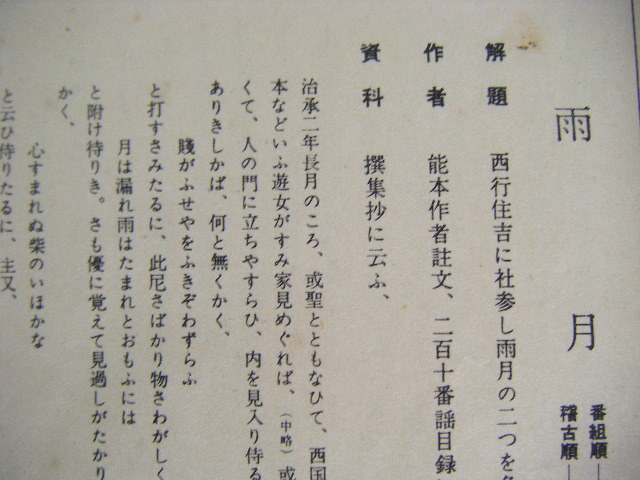 雨月
番組順
稽古順
解題 西行住吉に社参し雨月の二つを
作者 能本作者註文、二百十番謡目録
資料 撰集抄に云ふ、
治承二年長月のころ、或聖とともなひて、西国
本などいふ遊女がすみ家見めぐれば、(中略)或
くて、人の門に立ちやすらひ、内を見入り侍る
ありきしかば、何と無くかく、
賤がふせやをふきぞわずらふ
と打すさみたるに、此尼さばかり物さわがしく
月は漏れ雨はたまれとおもふには
と附け待りき。さも優に覚えて見過しがたかり
かく、
心すまれぬ柴のいほかな
と云ひ待りたるに、主又、